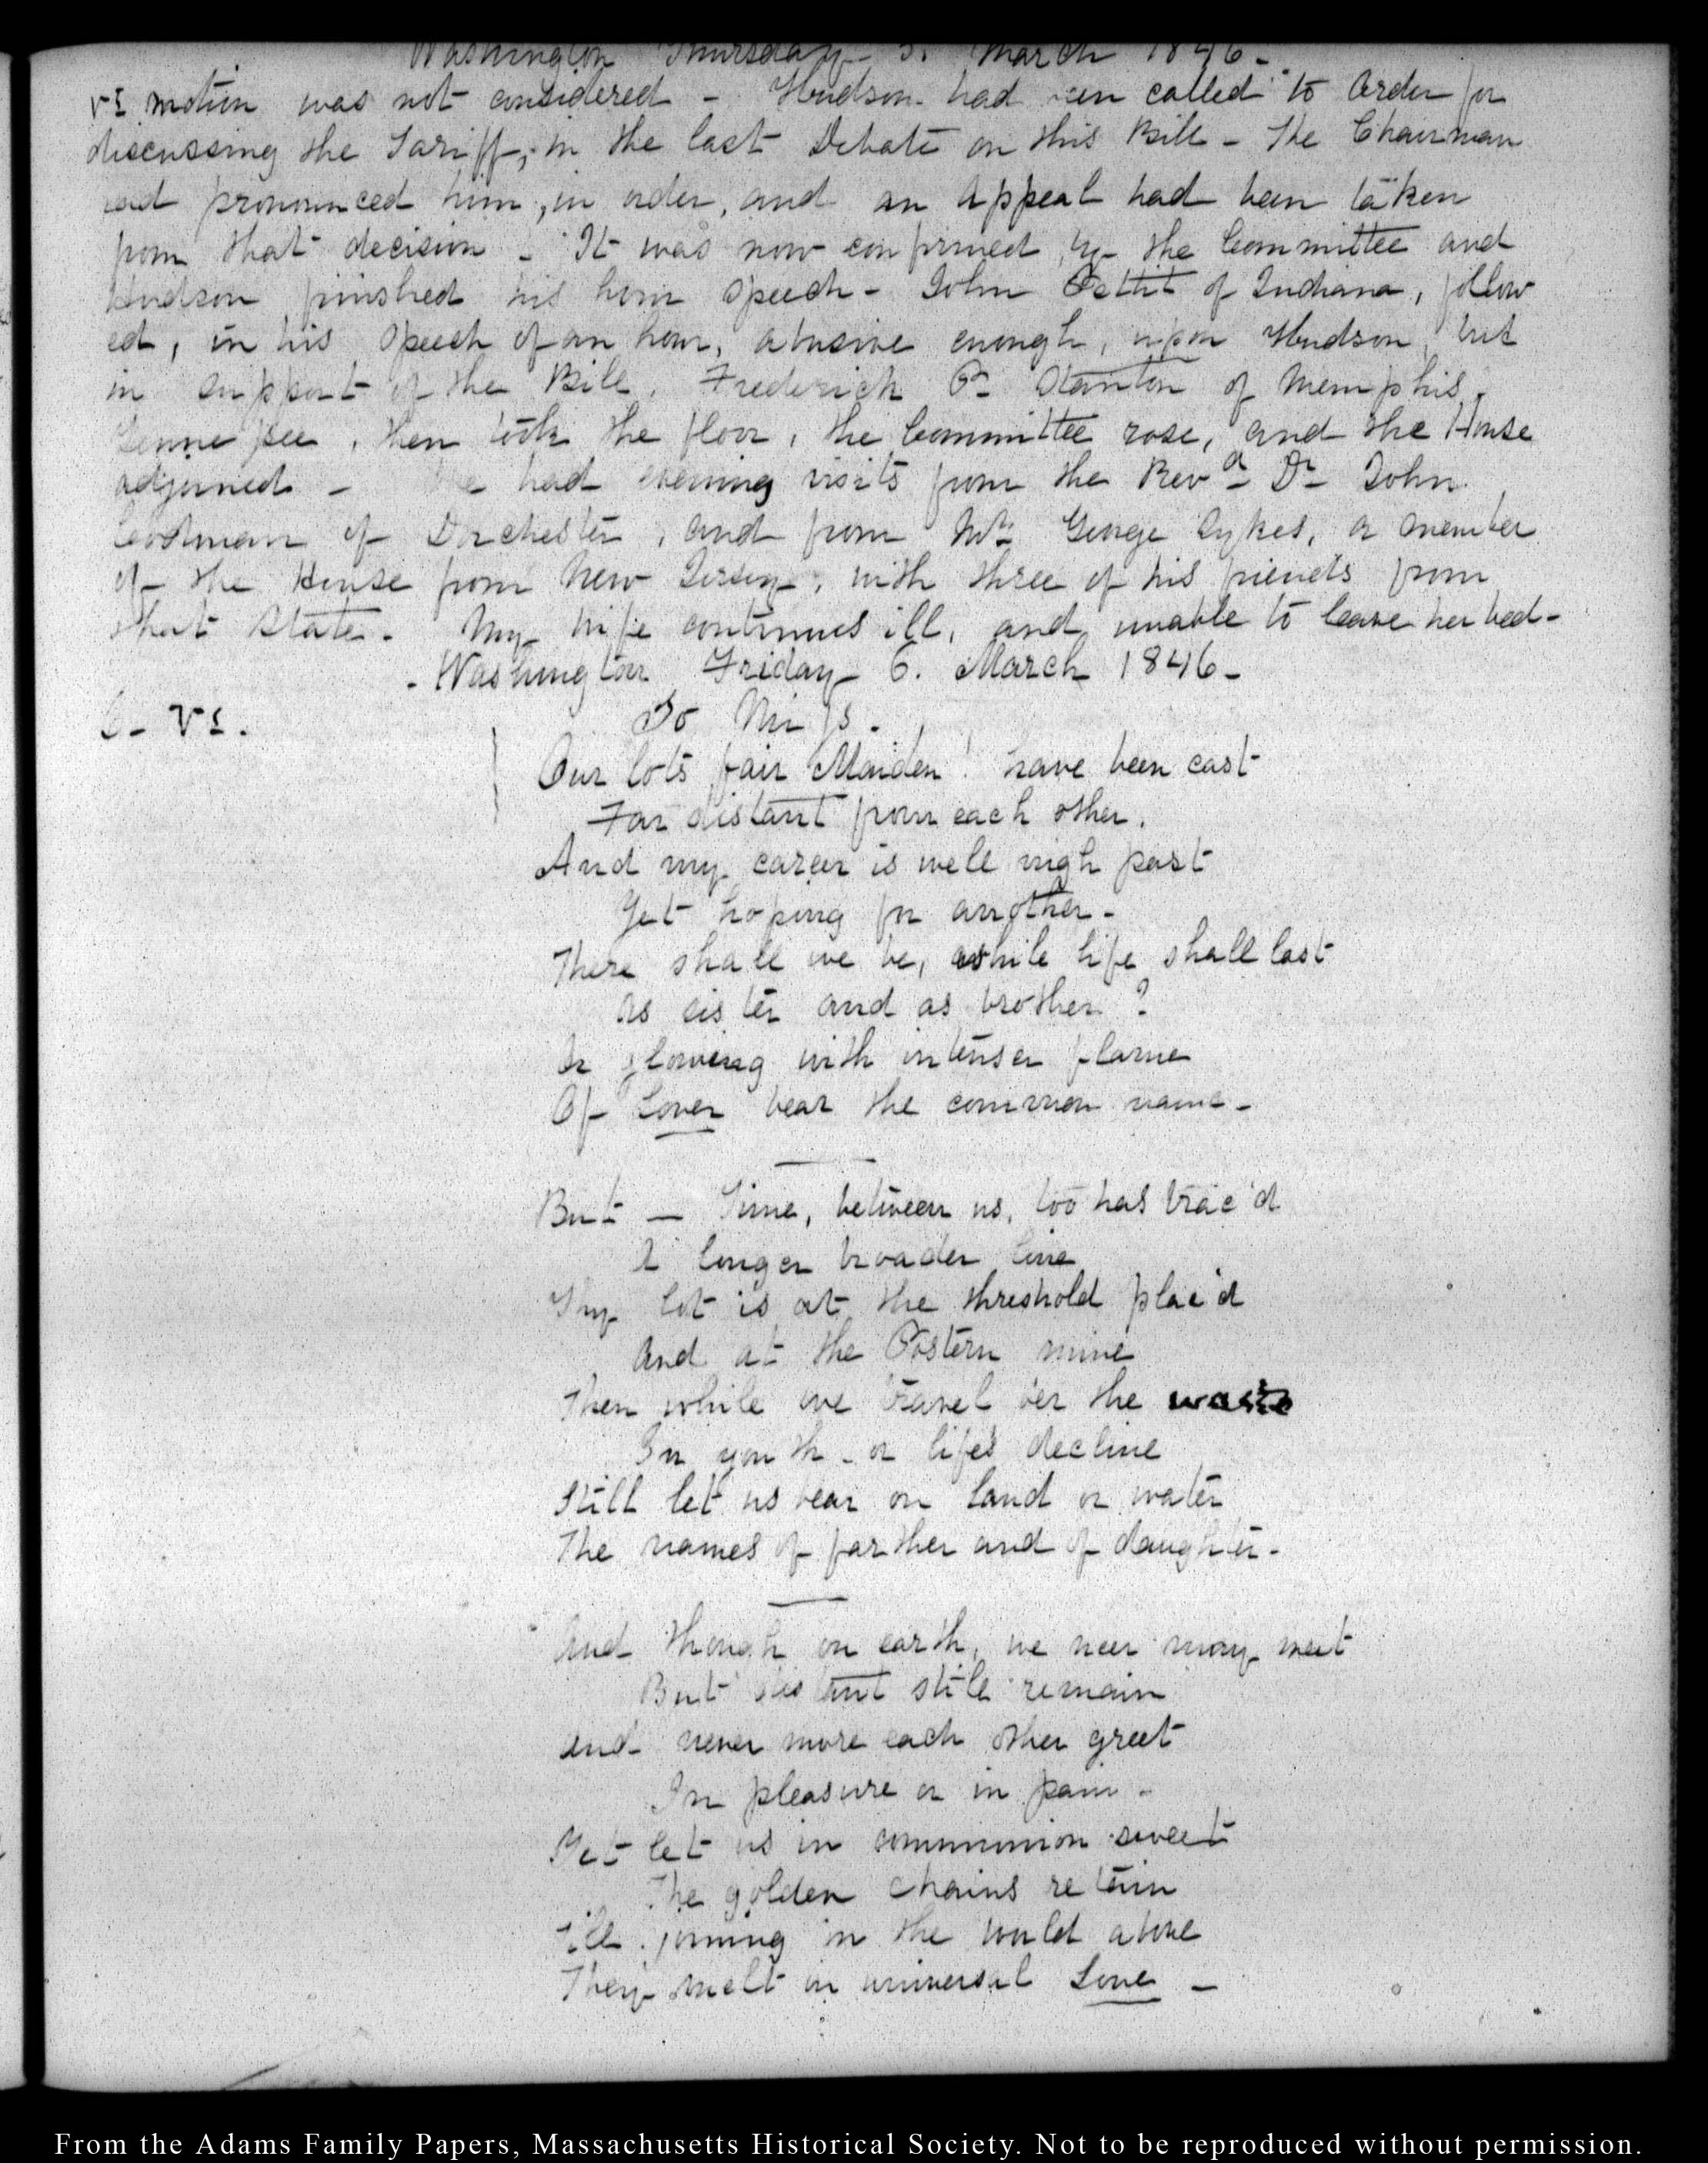 Washington Thursday 5. March 1846-
VI. motion was not considered - Hudson had been called to order for
discussing the Tariff, in the last Debate on this Bill - The Chairman
had pronounced him, in order, and an appeal had been taken
from that decision - It was now confirmed by the Committee and
Hudson finished his hour speech - John Pettit of Indiana, follow
ed, in his speech of an hour, abusive enough, upon Hudson, but
in support of the Bill. Frederick P. Stanton of Memphis
Tennessee, then took the floor, the Committee rose, and the House
adjourned - We had evening visits from the Revd. Dr. John
Codman of Dorchester, and from Mr. George Sykes, a member
of the House from New Jersey, with three of his friends from
that State. My wife continues ill, and unable to leave her bed-
- Washington Friday 6. March 1846-
6- VI.
To
Our lots fair Maiden! have been cast
Far distant from each other.
And my career is well nigh past
Yet hoping for another-
There shall we be, while life shall last
As sister and as brother?
Or glowing with intenser flame
Of Lover bear the common name-
But — Time, between us, too has trac'd
A longer broader line
Thy lot is at the threshold plac'd
And at the Postern mine
Then while we travel o'er the waste
In youth - or life's decline
Still let us bear on land or water
The names of farther and of daughter-
And though on earth, we neer may meet
But distant still remain
and never more each other greet
In pleasure or in pain-
Yet let us in communion sweet
The golden chains retain
Till joining in the world above
They melt in universal Love -
From the Adams Family Papers, Massachusetts Historical Society. Not to be reproduced without permission.